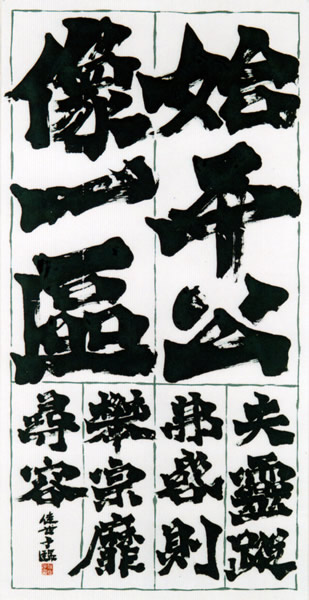 始平公
像一區
夫靈蹤
弗啓則
攀宗靡
尋容
佳世子臨